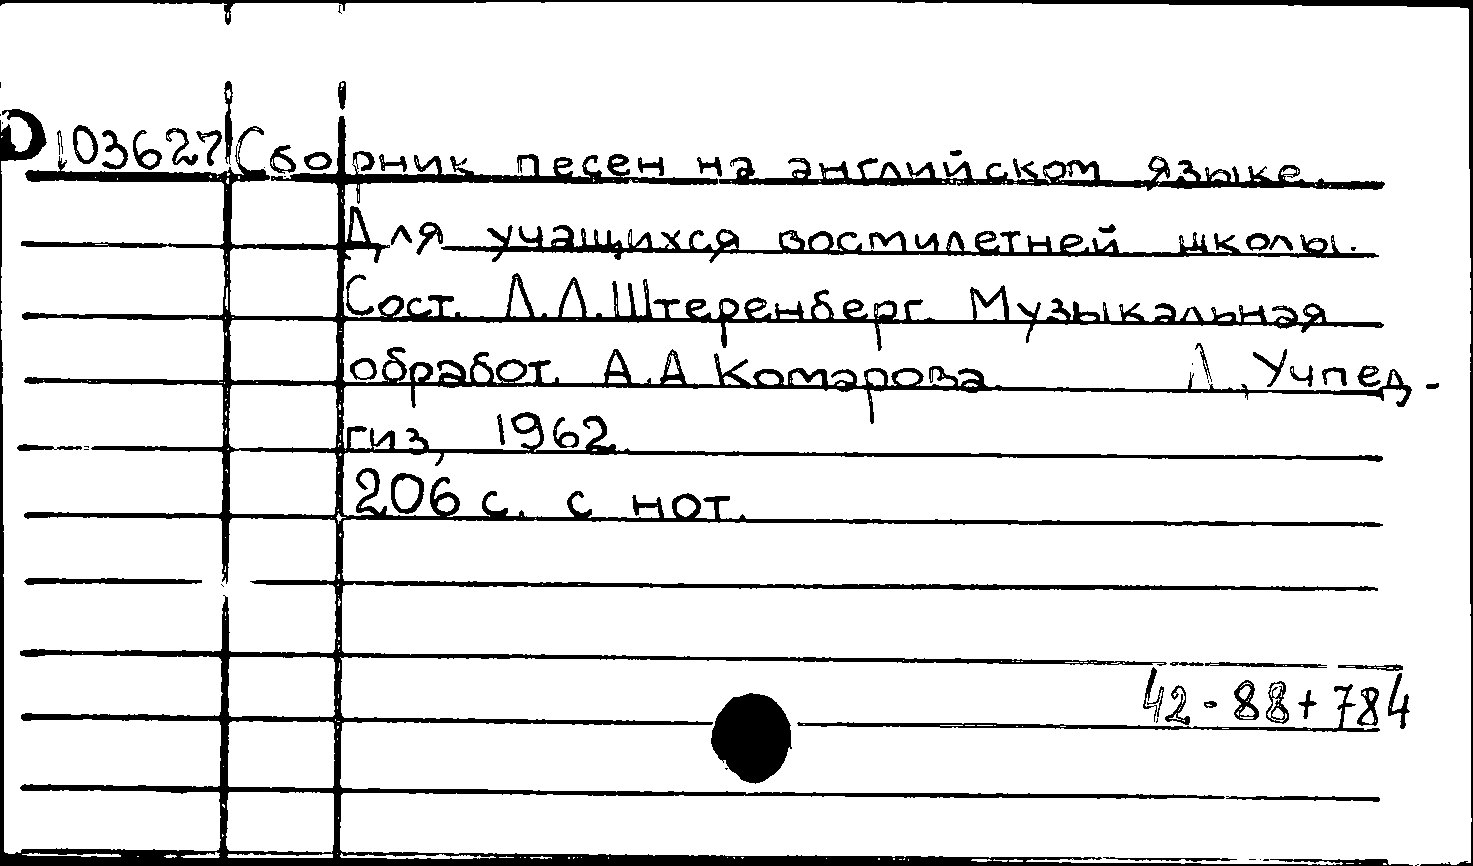 D103627 Сборник песен на английском языке.
Для учащихся восмилетней школы.
Сост. Л.Л.Штеренберг. Музыкальная
обработ. А.А Комарова. Л., Учпед-
гиз, 1962.
206 с. с нот.
42-88+784